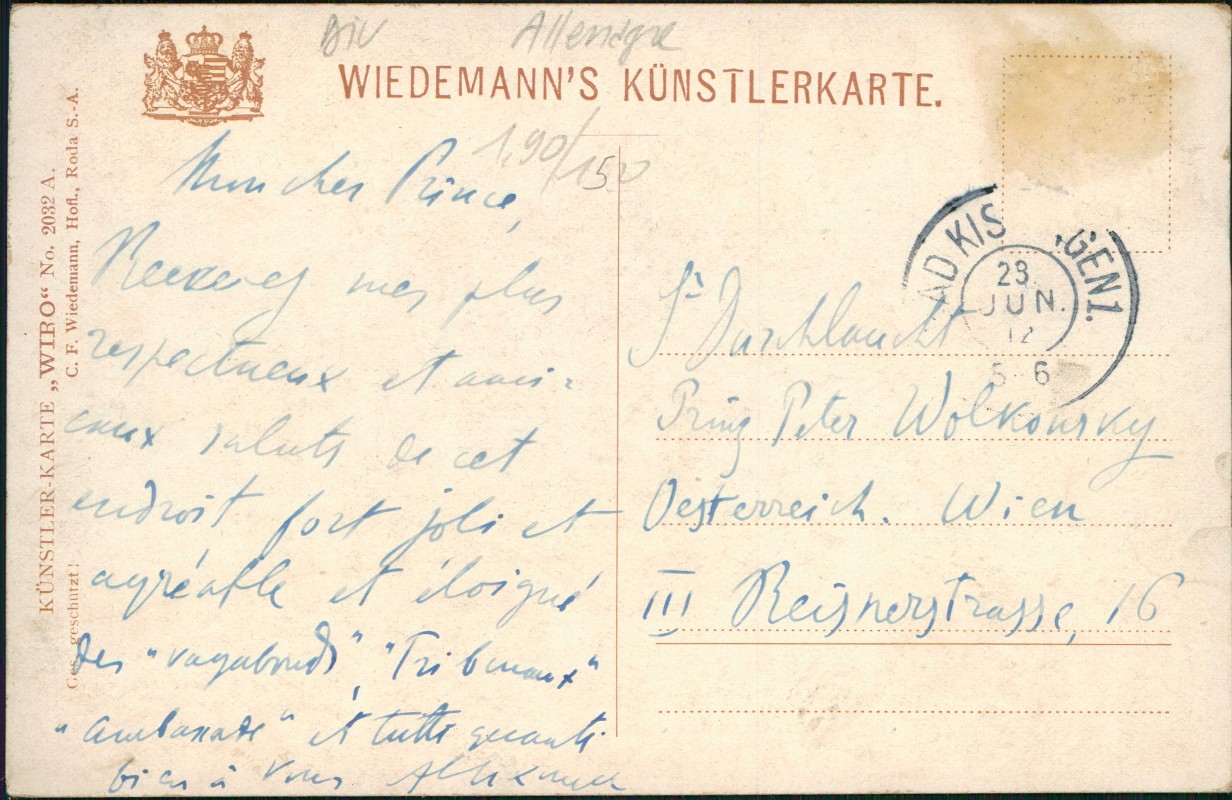 Div Allemagne
WIEDEMANN'S KÜNSTLERKARTE.
1,90/150
Mon cher Prince,
Recevez mes plus
respectueux et ami-
caux saluts de cet
endroit fort joli et
agréable et éloigné
des "vagabonds", "Tribunaux"
"Ambassade" et tutti quanti
bien à vous
AD KIS GEN 1.
23.
JUN.
12
5-6
Sr Durchlaucht
Prinz Peter Wolkonsky
Oesterreich. Wien
III Reisnerstrasse, 16
KÜNSTLER-KARTE „WIRO“ No. 2032 A.
Ges. geschützt! C. F. Wiedemann, Hofl., Roda S.-A.